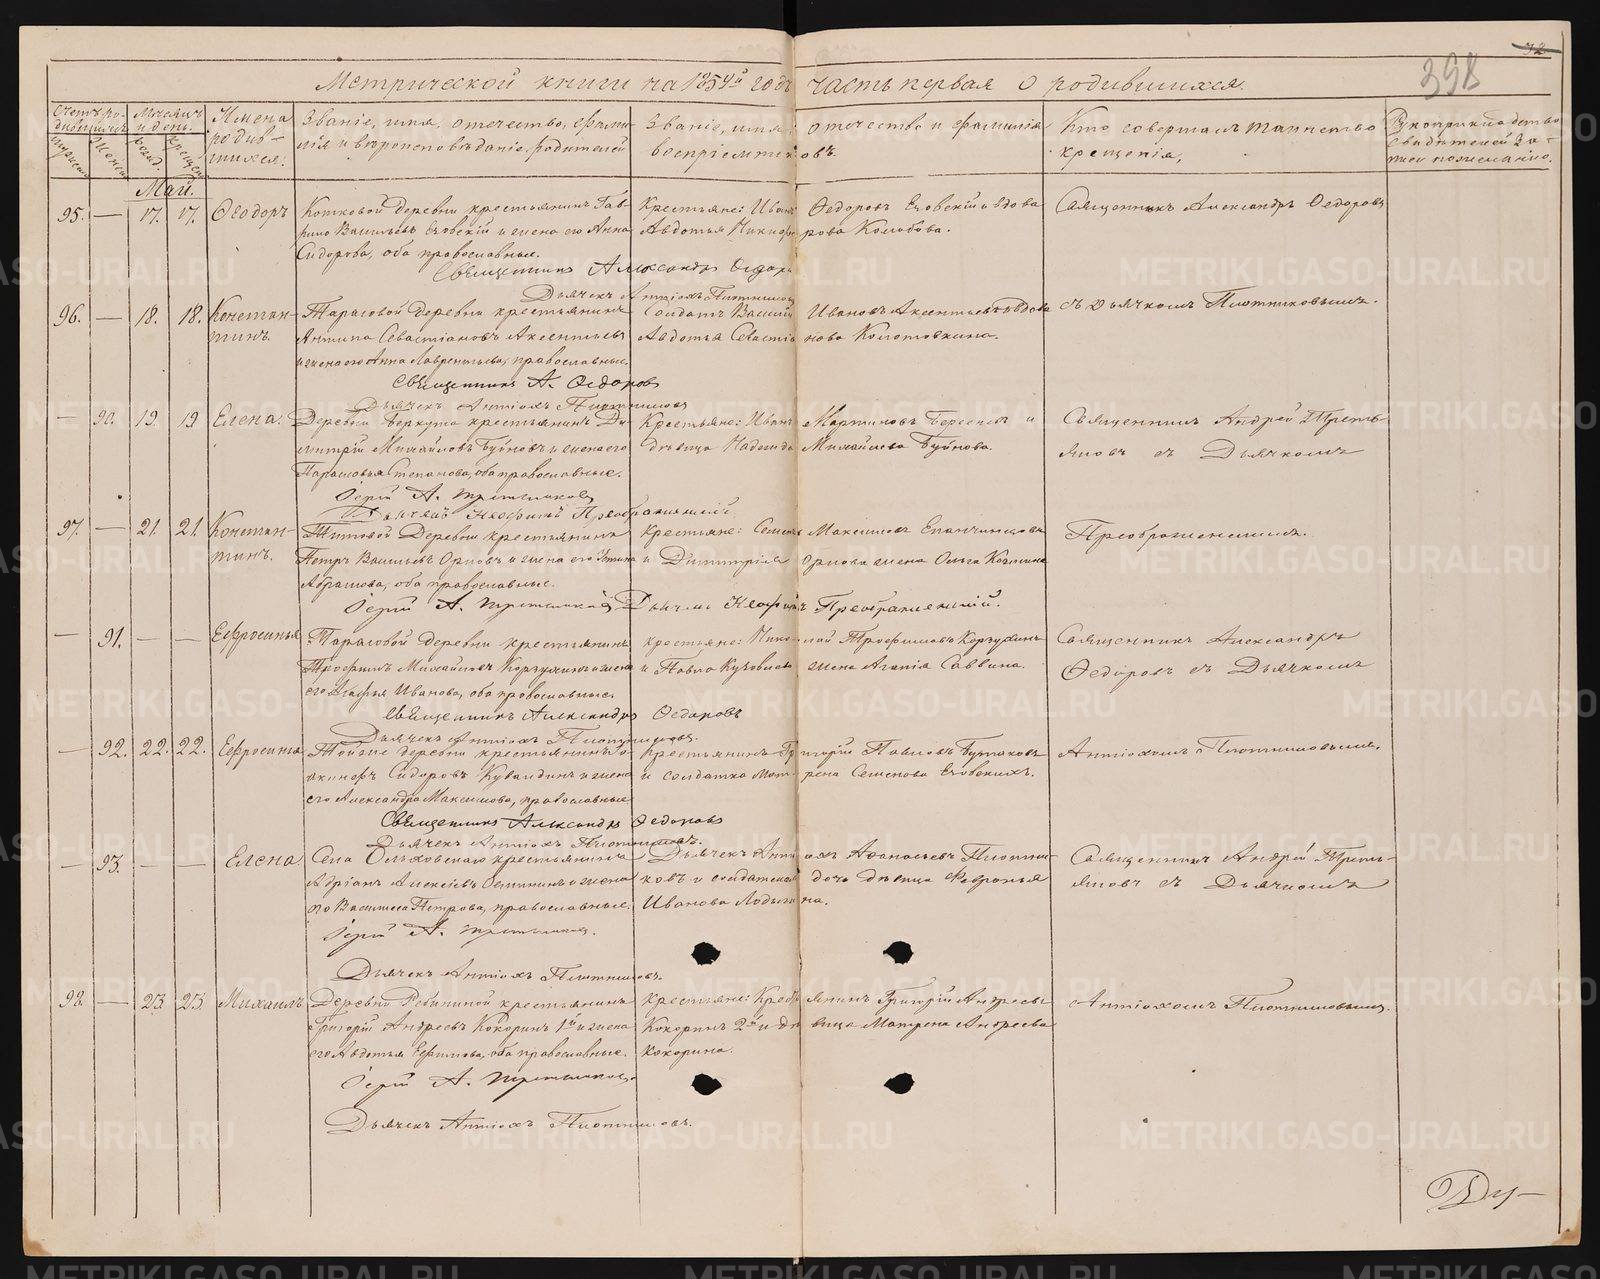 398
Метрической книги на 1859й годъ часть первая о родившихся.
Счетъ родившихся
Мѣсяцъ и день.
Имена родившихся.
Званіе, имя, отечество, фамилія и вѣроисповѣданіе родителей
Званіе, имя, отечество и фамилія воспріемниковъ.
Кто совершалъ таинство крещенія.
Рукоприкладство свидѣтелей записи по желанію.
Май.
95. — 17. 17. Ѳеодоръ
Котковой деревни крестьянинъ Гав-
рило Васильевъ Еховскій и жена его Анна
Сидорова, оба православные.
Крестьяне: Иванъ Ѳедоровъ Еховскій и вдова
Авдотья Никифорова Колобова.
Священникъ Александръ Ѳедоровъ
Священникъ Александръ Ѳедоровъ
Дьячекъ Антіохъ Плотниковъ
96. — 18. 18. Констан-
тинъ.
Тарасовой деревни крестьянинъ
Антипа Севастіановъ Аксентьевъ
и жена его Анна Лаврентьева, православные.
Солдатъ Василій Ивановъ Аксентьевъ и вдова
Авдотья Севастіанова Колотовкина.
съ дьячкомъ Плотниковымъ.
Священникъ А. Ѳедоровъ
Дьячекъ Антіохъ Плотниковъ
— 90. 19. 19 Елена.
Деревни Беркута крестьянинъ Ди-
митрій Михайловъ Буйновъ и жена его
Парасковья Степанова, оба православные.
Крестьяне: Иванъ Мартиновъ Береснев и
дѣвица Надежда Михайлова Буйнова.
Священникъ Андрей Треть-
яковъ съ Дьячкомъ
Іерей А. Третьяковъ
Дьячекъ Неофитъ Преображенскій
97. — 21. 21. Констан-
тинъ.
Титовой Деревни крестьянинъ
Петръ Васильевъ Орловъ и жена его Устинья
Абрамова, оба православные.
Крестьяне: Семенъ Максимовъ Епанчинцовъ
и Димитрія Орлова жена Ольга Козмина
Преображенскимъ.
Іерей А. Третьяковъ Дьячекъ Неофитъ Преображенскій.
— 91. — — Ефросинья
Тарасовой деревни крестьянинъ
Трофимъ Михайловъ Корзухинъ и жена
его Агафья Иванова, оба православные.
крестьяне: Николай Трофимовъ Корзухинъ
и Павла жена Агапія Саввина.
Священникъ Александръ
Ѳедоровъ съ Дьячкомъ
Священникъ Александръ Ѳедоровъ
Дьячекъ Антіохъ Плотниковъ.
— 92. 22. 22. Ефросинья
деревни крестьянинъ Іо-
акинфъ Сидоровъ Кувалдинъ и жена
его Александра Максимова, православные
Крестьянинъ Григорій Павловъ Бутаковъ
и солдатка Матрена Семенова Еховскихъ.
Антіохомъ Плотниковымъ.
Священникъ Александръ Ѳедоровъ
Дьячекъ Антіохъ Плотниковъ.
— 93. — — Елена
Села Ольховскаго крестьянинъ
Адріанъ Алексѣевъ и жена
его Василиса Петрова, православные.
Дьячекъ Антіохъ Аѳанасьевъ Плотни-
ковъ и солдатская дочь дѣвица Февронья
Иванова Лодыгина.
Священникъ Андрей Треть-
яковъ съ Дьячкомъ
Іерей А. Третьяковъ.
Дьячекъ Антіохъ Плотниковъ.
98. — 23. 23. Михаилъ
Деревни Рябининой крестьянинъ
Григорій Андреевъ Кокоринъ 1й и жена
его Авдотья Ефимова, оба православные.
крестьяне: Григорій Андреевъ
Кокоринъ 2й и дѣвица Матрена Андреева
Кокорина.
Антіохомъ Плотниковымъ.
Іерей А. Третьяковъ.
Дьячекъ Антіохъ Плотниковъ.
METRIKI.GASO-URAL.RU